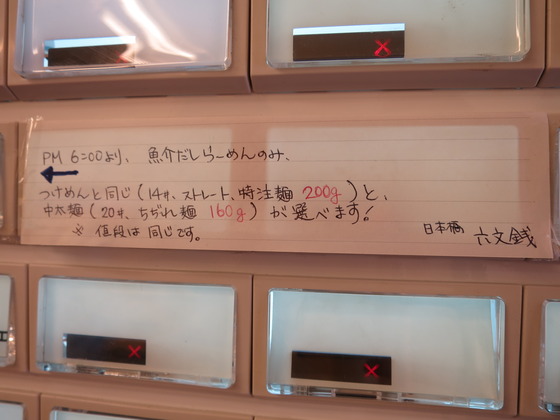 PM 6:00より、魚介だしらーめんのみ、
←
つけめんと同じ(14#、ストレート、特注麺 200g)と、
中太麺(20#、ちぢれ麺 160g)が選べます!
※ 値段は同じです。
日本橋 六文銭